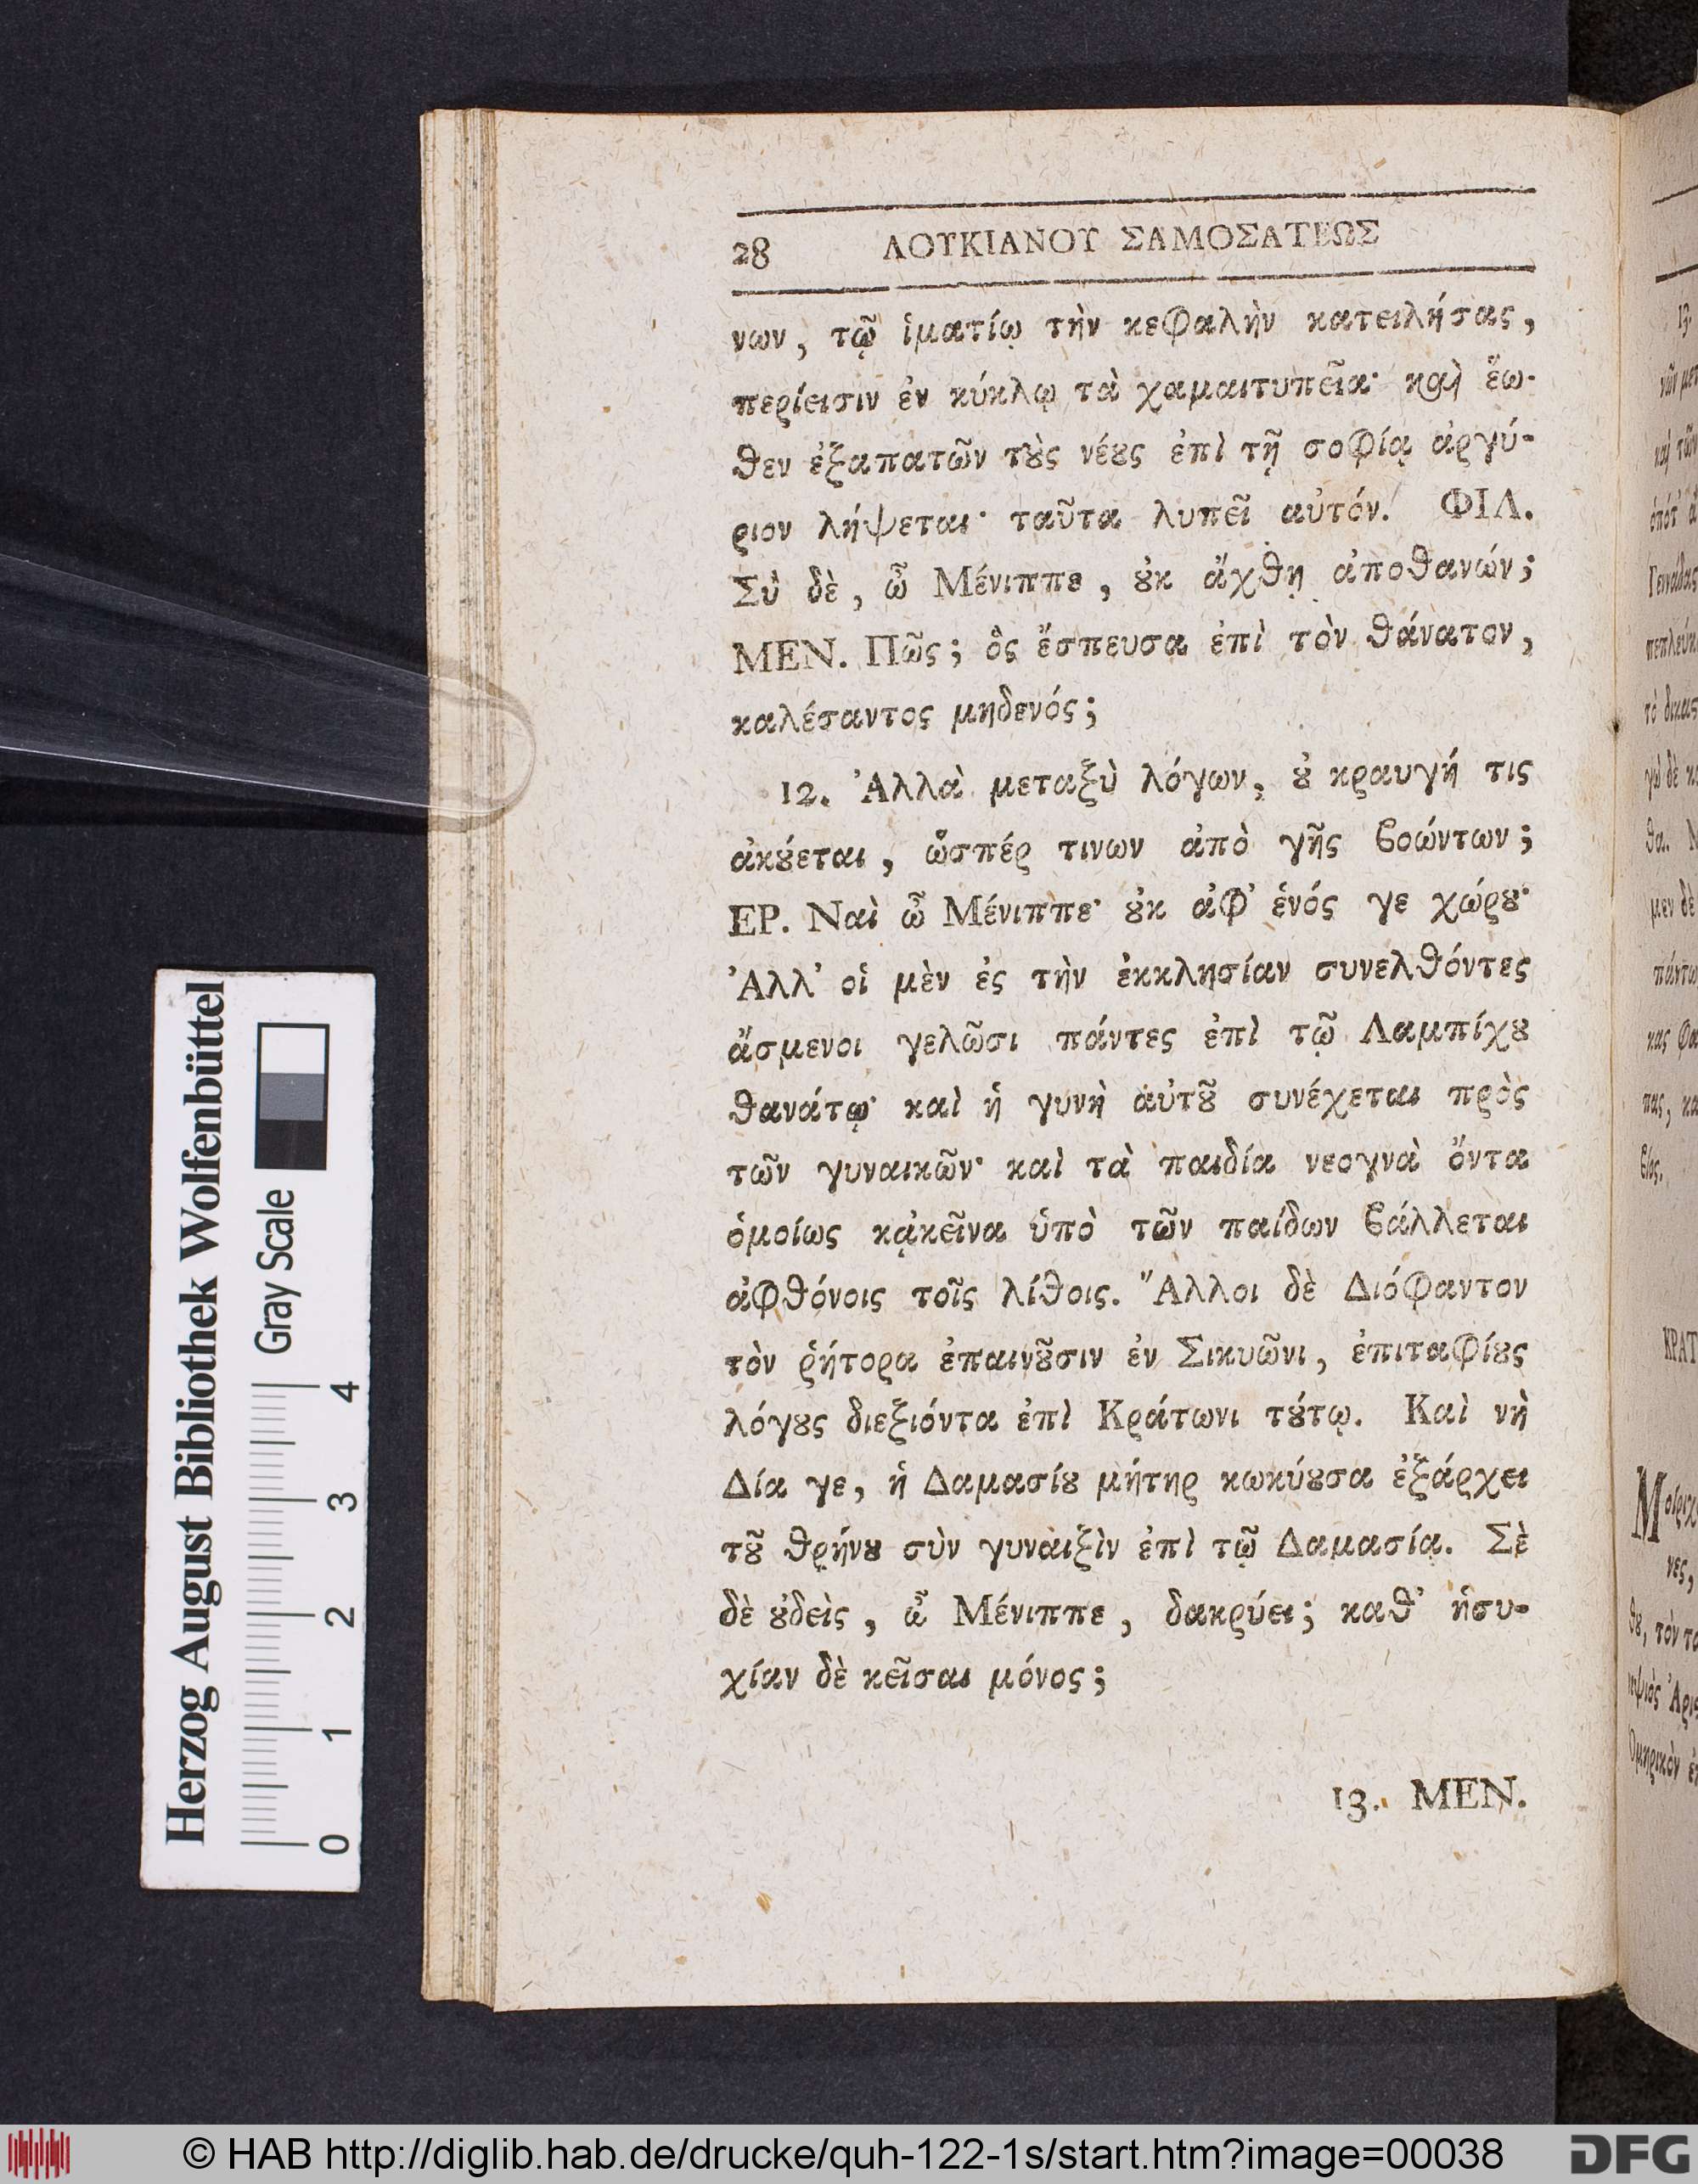 28 ΛΟΥΚΙΑΝΟΥ ΣΑΜΟΣΑΤΕΩΣ
νων, τῷ ἱματίῳ τὴν κεφαλὴν κατειλήσας,
περίεισιν ἐν κύκλῳ τὰ χαμαιτυπεῖα· καὶ ἕω-
θεν ἐξαπατῶν τȣ̀ς νέȣς ἐπὶ τῇ σοφίᾳ ἀργύ-
ριον λήψεται· ταῦτα λυπεῖ αὐτόν. ΦΙΛ.
Σὺ δὲ, ὦ Μένιππε, ȣ̓κ ἄχθῃ ἀποθανών;
ΜΕΝ. Πῶς; ὃς ἔσπευσα ἐπὶ τὸν θάνατον,
καλέσαντος μηδενός;
12. Ἀλλὰ μεταξὺ λόγων, ȣ̓ κραυγή τις
ἀκȣ́εται, ὥσπέρ τινων ἀπὸ γῆς ϐοώντων;
ΕΡ. Ναὶ ὦ Μένιππε· ȣ̓κ ἀφ' ἑνός γε χώρȣ·
Ἀλλ' οἱ μὲν ἐς τὴν ἐκκλησίαν συνελθόντες
ἄσμενοι γελῶσι πάντες ἐπὶ τῷ Λαμπίχȣ
θανάτῳ· καὶ ἡ γυνὴ αὐτȣ͂ συνέχεται πρὸς
τῶν γυναικῶν· καὶ τὰ παιδία νεογνὰ ὄντα
ὁμοίως κᾀκεῖνα ὑπὸ τῶν παίδων ϐάλλεται
ἀφθόνοις τοῖς λίθοις. Ἄλλοι δὲ Διόφαντον
τὸν ῥήτορα ἐπαινȣ͂σιν ἐν Σικυῶνι, ἐπιταφίȣς
λόγȣς διεξιόντα ἐπὶ Κράτωνι τȣ́τῳ. Καὶ νὴ
Δία γε, ἡ Δαμασίȣ μήτηρ κωκύȣσα ἐξάρχει
τȣ͂ θρήνȣ σὺν γυναιξὶν ἐπὶ τῷ Δαμασίᾳ. Σὲ
δὲ ȣ̓δεὶς, ὦ Μένιππε, δακρύει; καθ' ἡσυ-
χίαν δὲ κεῖσαι μόνος;
13. ΜΕΝ.
Herzog August Bibliothek Wolfenbüttel
Gray Scale
0 1 2 3 4
© HAB http://diglib.hab.de/drucke/quh-122-1s/start.htm?image=00038
DFG